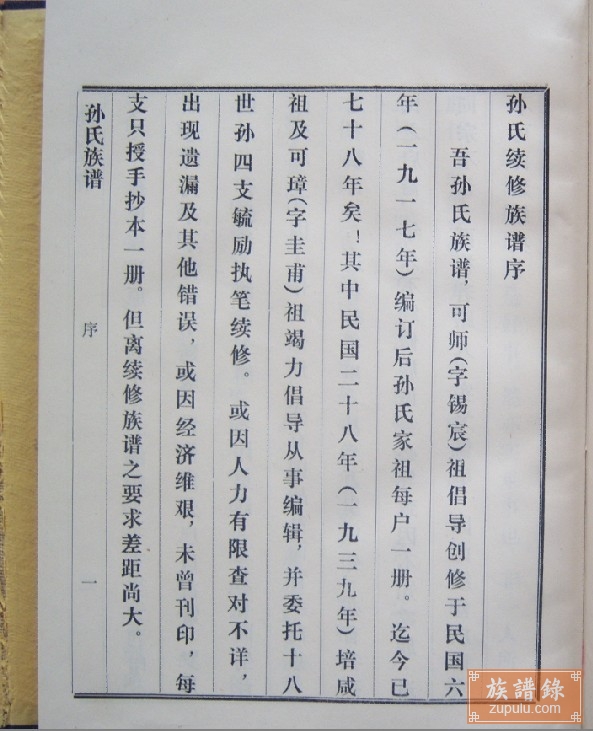 孙氏续修族谱序
吾孙氏族谱，可师（字锡宸）祖倡导创修于民国六
年（一九一七年）编订后孙氏家祖每户一册。迄今已
七十八年矣！其中民国二十八年（一九三九年）培咸
祖及可璋（字圭甫）祖竭力倡导从事编辑，并委托十八
世孙四支毓励执笔续修。或因人力有限查对不详，
出现遗漏及其他错误，或因经济维艰，未曾刊印，每
支只授手抄本一册。但离续修族谱之要求差距尚大。
孙氏族谱 序 一
族譜錄
zupulu.com